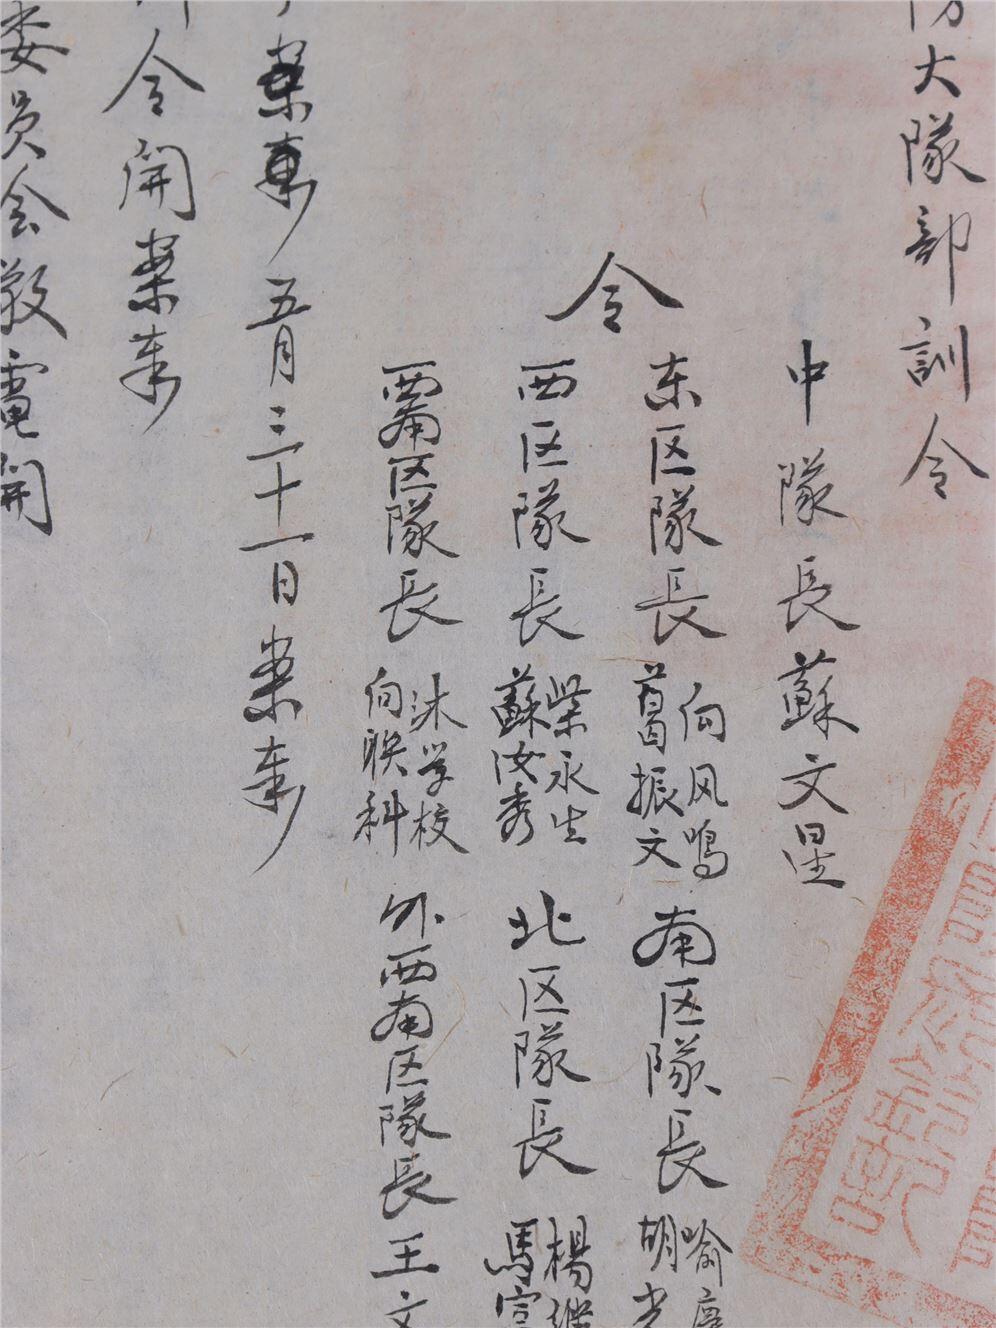 防大隊部訓令
中隊長蘇文星
东区隊長 向风鸣 葛振文 南区隊長 喻 胡
令
西区隊長 柴永生 蘇汝秀 北区隊長 楊继 馬宣
西南区隊長 沐学校 向映科 外西南区隊長 王文
案奉 五月三十一日案奉
令開案奉
委员会敬電開